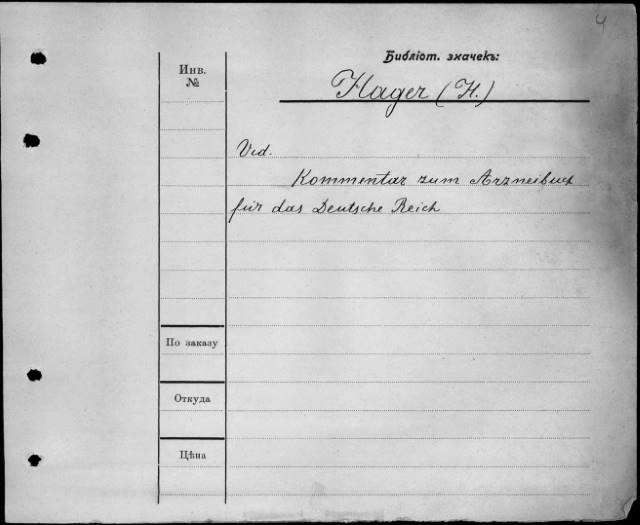 4
Библіот. значекъ:
Инв.
№
Hager (H.)
Vid.
Kommentar zum Arzneibuch
für das Deutsche Reich
По заказу
Откуда
Цѣна